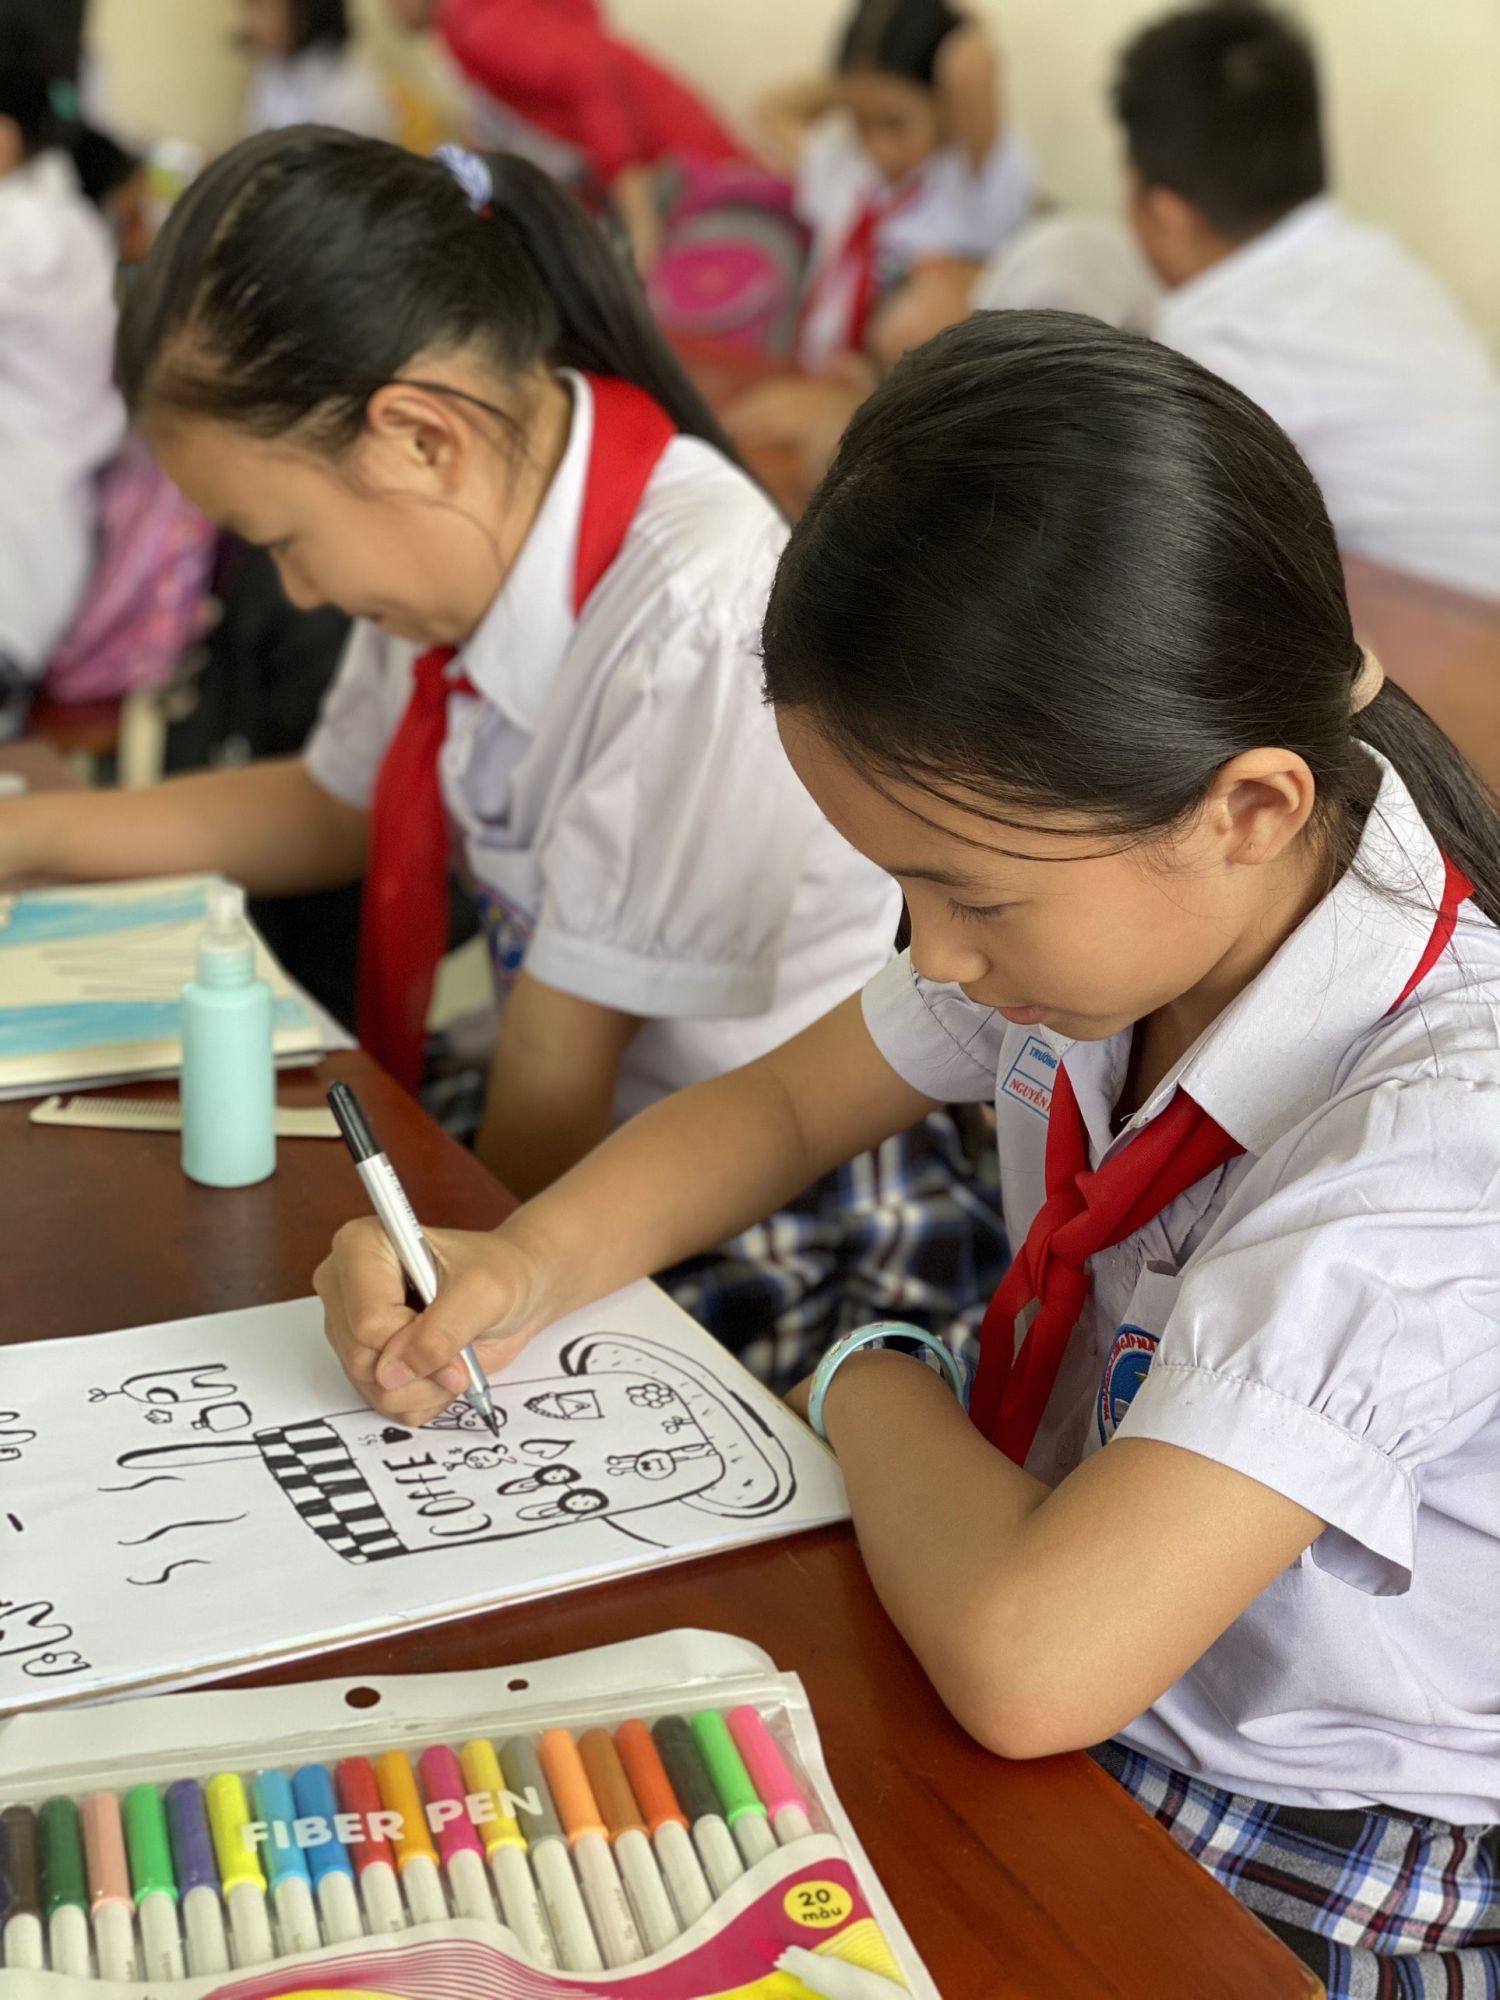 TRƯỜNG
NGUYỄN
COFFE
FIBER PEN
20
màu